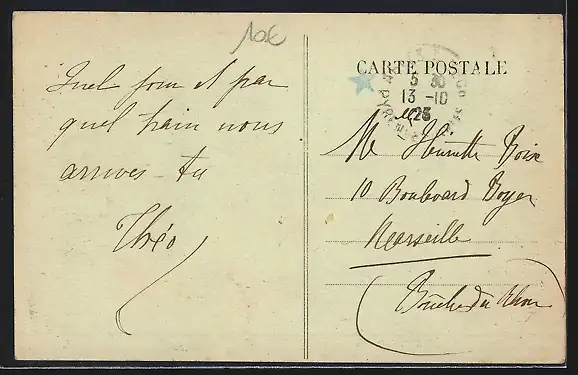 10€
Quel jour et par
quel train nous
arrives-tu
Théo
CARTE POSTALE
5 30
13-10
23
PYRENEES
Mlle Henriette Boix
10 Boulevard Boyer
Marseille
Bouches du Rhône